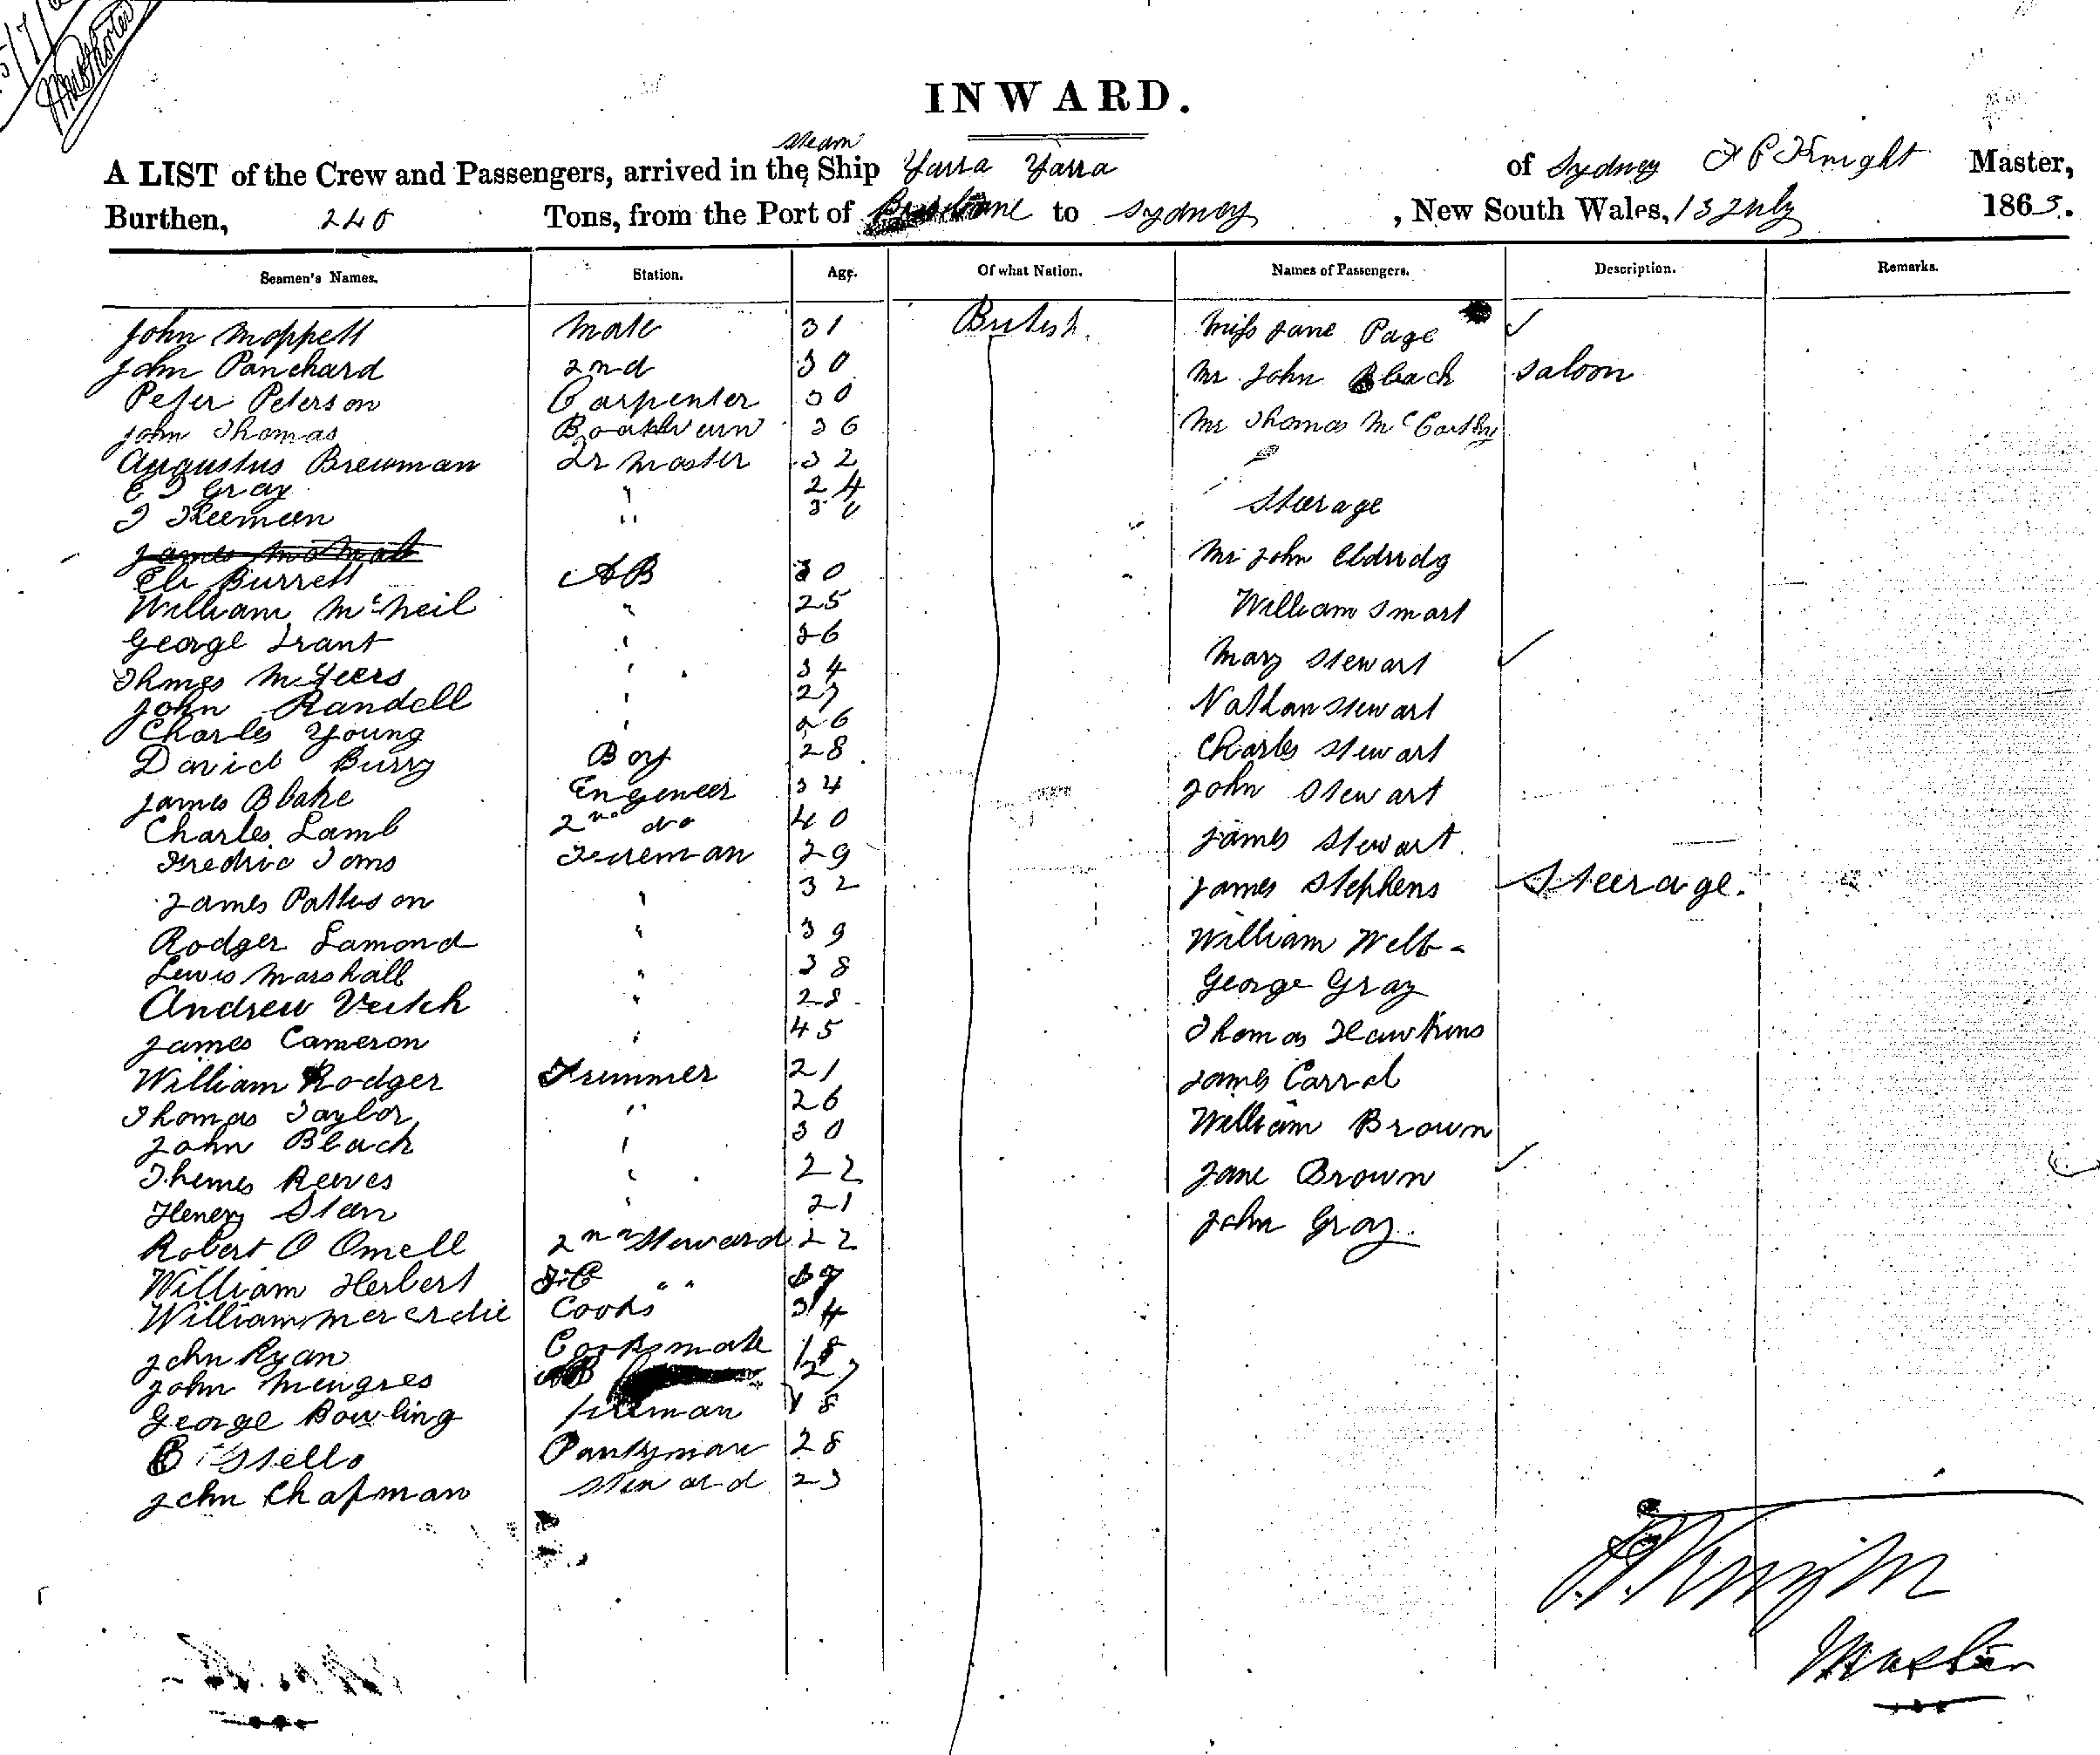 INWARD.
steam
A LIST of the Crew and Passengers, arrived in the Ship Yarra Yarra of Sydney Knight Master,
Burthen, 240 Tons, from the Port of Brisbane to Sydney, New South Wales, 13 July 1863.
Seamen's Names. Station. Age. Of what Nation. Names of Passengers. Description. Remarks.
John Moppett Mate 31 British. Miss Jane Page
John Panchard 2nd 30 Mr John Black Saloon
Peter Peterson Carpenter 30
John Thomas Boatswain 36 Mr Thomas McCarthy
Augustus Brewman Qr Master 32
Gray " 24 Steerage
" 
James
Mr John Eldridg
Eli Burrett AB 30
William McNeil " 25 William Smart
George Grant " 36
Mary Stewart
Thmes " 34
John Randell " 27 Nathan Stewart
Charles Young " 26
David Burry Boy 28 Charles Stewart
James Blake Engeneer 34 John Stewart
Charles Lamb 2nd do 40
Fredric Toms Fireman 29 James Stewart
James Patterson " 32 James Stephens Steerage.
Rodger Lamond " 39 William Webb
Lewis Marshall " 38
Andrew Veitch " 28 George Gray
James Cameron " 45 Thomas Hawkins
William Rodger Trimmer 21 James Carrol
Thomas Taylor " 26 William Brown
John Black " 30
Thomes Reeves " 22 Jane Brown
Henery Stan " 21
John Gray
Robert O Omell 2nd Steward 22
William Herbert " "
William Mererdie Cooks 34
John Ryan Cooksmate 18
John Mengres AB 27
George Bowling fireman 18
Stello Pantryman 28
John Chapman Steward 23
Knight
Master